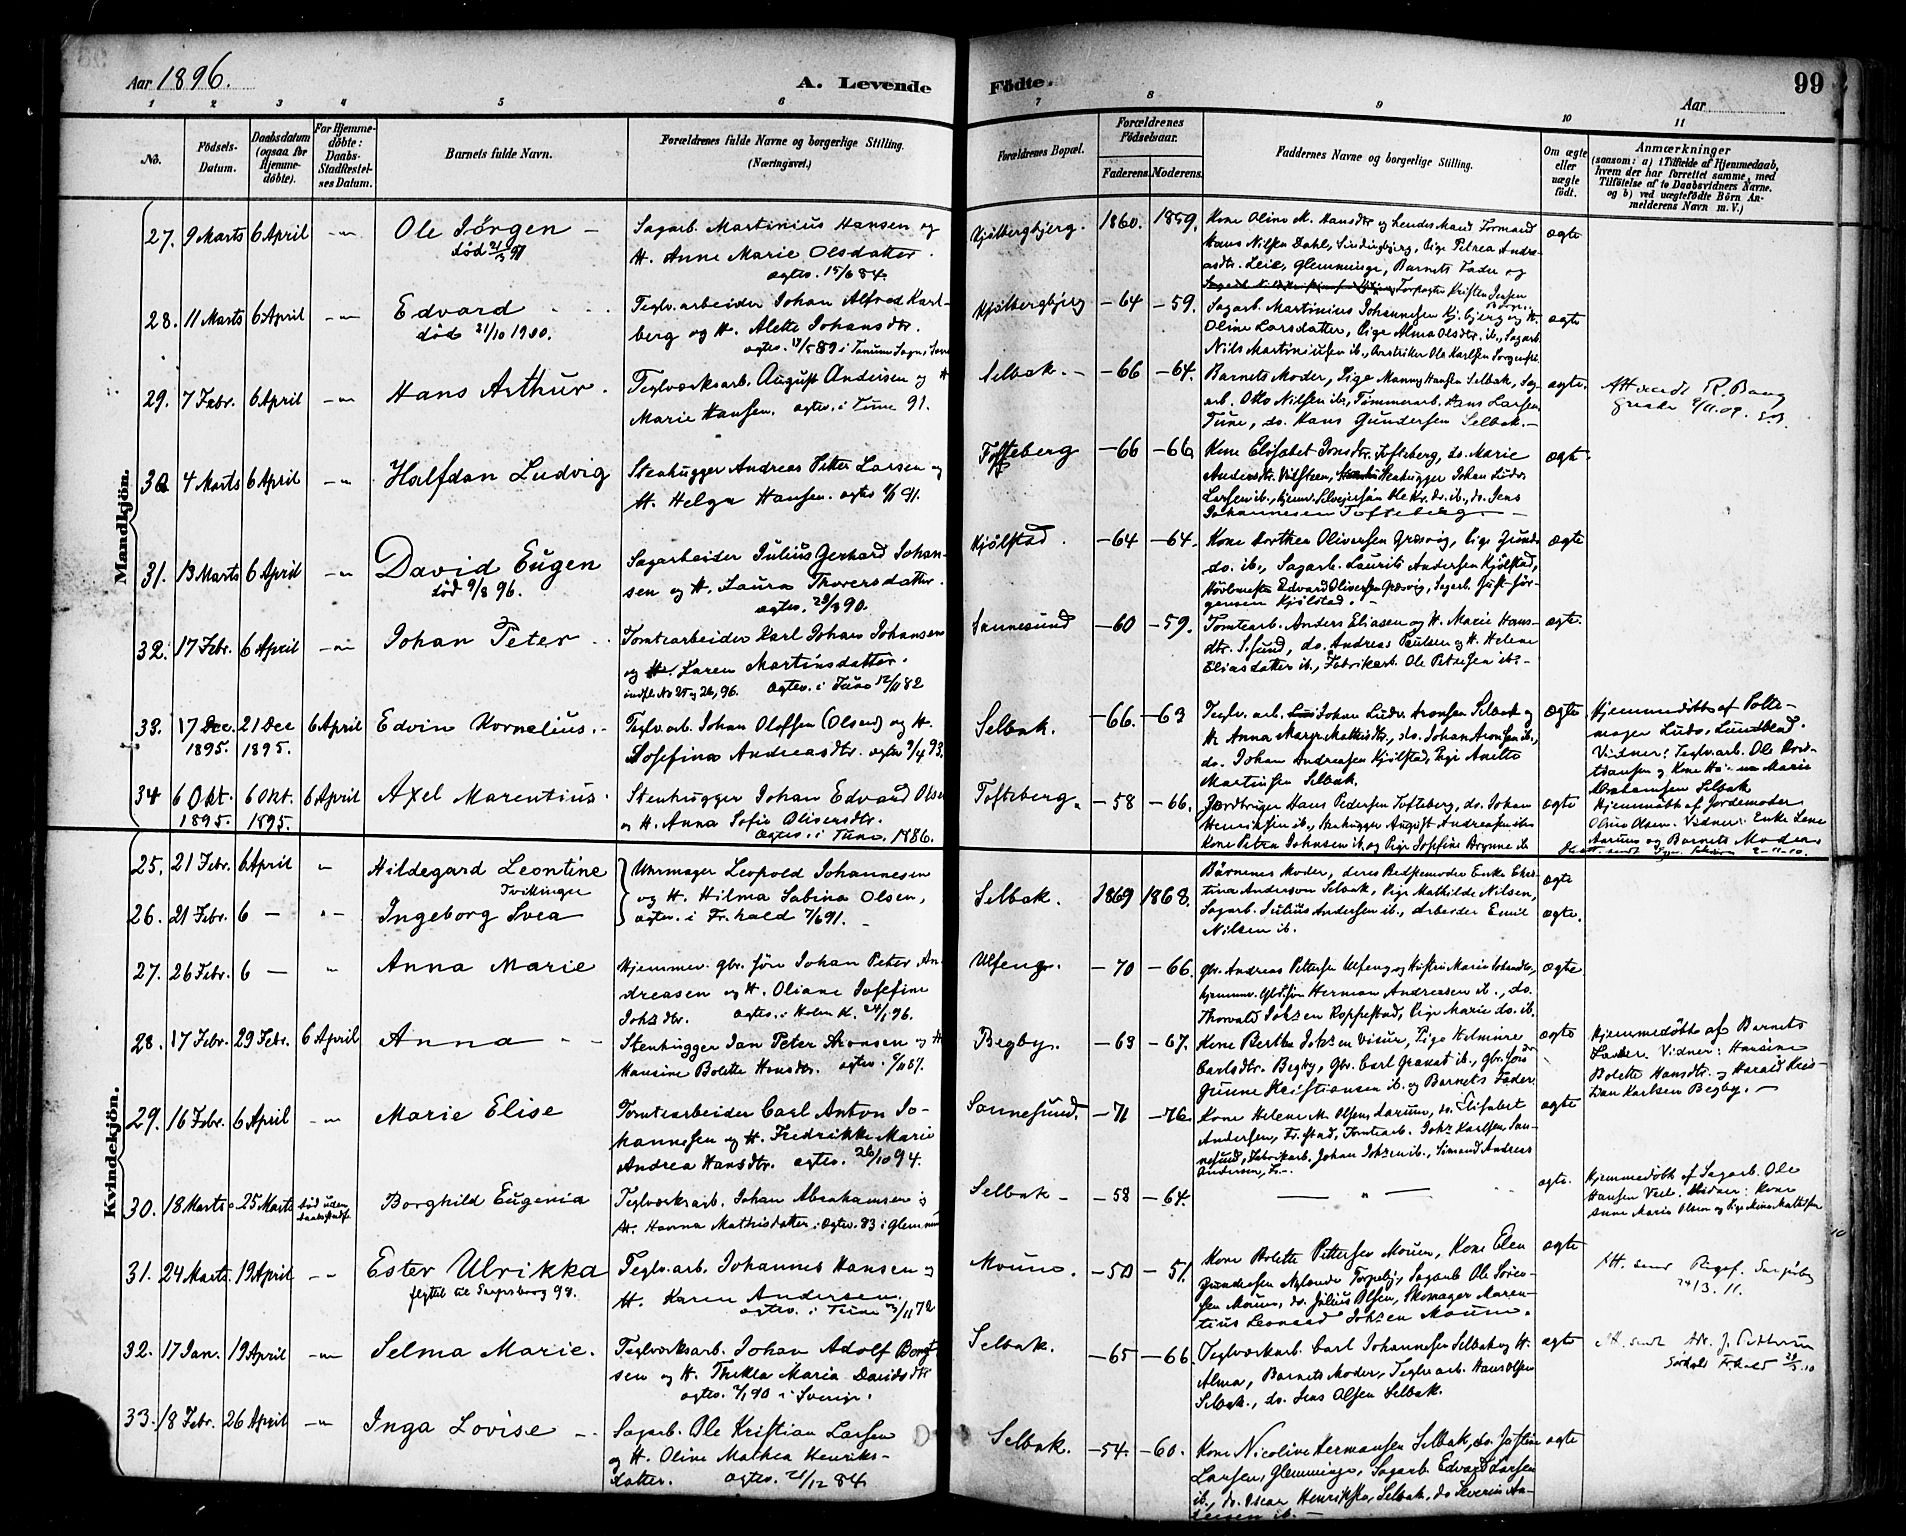 Aar 1896.
A. Levende
Fødte.
99
Aar
1 2 3 4 5 6 7 8 9 10 11
No.
Fødsels-Datum.
Daabsdatum (ogsaa for Hjemmedøbte).
For Hjemmedøbte: Daabs-Stadfæstelses Datum.
Barnets fulde Navn.
Forældrenes fulde Navne og borgerlige Stilling. (Næringsvei.)
Forældrenes Bopæl.
Forældrenes Fødselsaar.
Faderens. Moderens.
Faddernes Navne og borgerlige Stilling.
Om ægte eller uægte født.
Anmærkninger
(saasom: a) i Tilfælde af Hjemmedaab, hvem der har forrettet samme, med Tilføielse af to Daabsvidners Navne, og b) ved uægtefødte Børn Anmelderens Navn m. V.)
Mandkjøn.
27. 9 Marts 6 April
Ole Jørgen
død
Sagarb. Martinius Hansen og
H. Anne Marie Olsdatter.
ægtev. 15/6 84.
Kjølbergbjerg. 1860. 1859.
Kone Oline M. Hansdtr og hendes Mand Formand
Hans Nilsen Dahl, Pige Petrea Andre-
asdtr. Leie, Glemminge, Barnets Fader og
Torpagter Kristen Jensen
ægte
28. 11 Marts 6 April
Edvard
død 21/10 1900.
Teglv.arbeider Johan Alfred Karl-
berg og H. Alette Johansdtr.
Kjølbergbjerg -64 -59.
Sagarb. Martinius Johannesen Kj.bjerg og H.
Oline Larsdatter, Pige Alma Olsdtr. ib., Sagarb.
Nils Martiniusen ib., Ole Karlsen
ægte
29. 7 Febr. 6 April
Hans Arthur.
Teglværksarb. August Andersen og H
Marie Hansen. ægtev. i Tune 91.
Selbak. -66 -64.
Barnets Moder, Pige Manny Hansen Selbak, Sag-
arb. Otto Nilsen ib., Tømmerarb. Hans Larsen
Tune, do. Hans Gundersen Selbak.
ægte.
30 4 Marts 6 April
Halfdan Ludvig
Stenhugger Andreas Peter Larsen og
H. Helga Hansen.
Tofteberg -66 -66
Kone Elisabet Jonsdtr. Tofteberg, do. Marie
Andersdtr. Stenhugger Johan Ludv.
Larsen ib., Ole Kr. do. ib., do. Jens
Johannesen Tofteberg
ægt.
31. 13 Marts 6 April
David Eugen
død 9/8 96.
Sagarbeider Julius Gerhard Johan-
sen og H. Laura Thoversdatter.
Kjølstad. -64 -64.
Kone Dorthea Oliversen Græsvig, Pige
do. ib., Sagarb. Laurits Andersen Kjølstad,
Edvard Oliversen Græsvig, Sagarb. Just Jør-
gensen Kjølstad.
ægte
32. 17 Febr. 6 April
Johan Peter
Tomtearbeider Karl Johan Johansen
og H. Karen Martinsdatter.
indfl. No 25 og 26, 96. ægtev. i Tune 12/11 82
Sannesund -60 -59.
Tomtearb. Anders Eliasen og H. Marie Hans-
dtr. S.sund, do. Andreas Paulsen og H. Helene
Eliasdatter ib., Fabrikarb. Ole Petersen ib.
ægte.
33. 17 Dec. 1895. 21 Dec 1895. 6 April
Edvin Kornelius.
Teglv.arb. Johan Oloffsen (Olsen) og H.
Josefina Andreasdtr. ægtev 9/4 93.
Selbak. -66. -63
Teglv. arb. Johan Ludv. Aronsen Selbak og
H. Anna Marg. Mathisdtr., do. Johan Aronsen ib.,
do. Johan Andreasen Kjølstad, Pige Anette
Martinsen Selbak.
ægte
Hjemmedøbt af Potte-
mager Ludv. Lundblad.
Vidner: Teglv.arb. Ole
og Kone Marie
Abrahamsen Selbak
34 6 Okt. 1895. 6 Okt. 1895. 6 April
Axel Marentius.
Stenhugger Johan Edvard Olse
og H. Anna Sofie Oliversdtr.
ægtev. i Tune 1886.
Tofteberg. -58 -66.
Jordbruger Hans Pedersen Tofteberg, do. Johan
Henriksen ib., Stenhugger August Andreasen ib.
Kone Petra Johnsen ib. og Pige Josefine Brynne ib
ægte
Hjemmedøbt af Jordemoder
Oline Olsen. Vidner: Enke Lene
Aarum og Barnets Moder
Kvindekjøn.
25. 21 Febr. 6 April
Hildegard Leontine
Tvillinger
26. 21 Febr. 6
Ingeborg Svea
Urmager Leopold Johannesen
og H. Hilma Sabina Olsen,
ægtev. i Fr.hald 7/6 91.
Selbak. 1869 1868.
Børnenes Moder, deres Bedstemoder Enke Chris-
tina Anderson Selbak, Pige Mathilde Nilsen,
Sagarb. Julius Andersen ib., Arbeider Emil
Nilsen ib.
ægte
ægte.
27. 26 Febr. 6
Anna Marie
Hjemmev. gbr. søn Johan Peter An-
dreasen og H. Oliane Josefine
Johsdtr. ægtev. i 24/1 96.
Ulfeng. -70 -66.
Gbr. Andreas Pettersen Ulfeng og Hustru Marie
hjemmev. Gbr.søn Herman Andreasen ib., do.
Thorvald Johsen Roppestad, Pige Marie do. ib.
ægte
28. 17 Febr. 29 Febr. 6 April
Anna
Stenhugger Jan Peter Aronsen og H
Hansine Bolette Hansdtr.
Begby. -63 -67.
Kone Berthe Johsen Visur, Pige Helmine
Carlsdtr. Begby, Gbr. Carl Granat ib., gbr. søn
Gunne Kristiansen ib. og Barnets Fader
ægte
Hjemmedøbt af Barnets
Fader. Vidner: Hansine
Bolette Hansdtr. og Harald Kris-
tian Karlsen Begby.
29. 16 Febr. 6 April
Marie Elise
Tomtearbeider Carl Anton Jo-
hannesen og H. Fredrikke Marie
Andrea Hansdtr. ægtev. 26/10 94.
Sannesund. -71 -76
Kone Helene M. Olsen, Larum, do. Elisabet
Andersen, Fr.stad, Tomtearb. Johs Karlsen San-
nesund, Fabrikarb. Johan Johsen ib., Sømand Andreas
Anderson,
ægte
30. 18 Marts 25 Marts død uden
Borghild Eugenia
Teglværksarb. Johan Abrahamsen og
H. Hanna Mathisdatter. ægtev. 83 i Glemm
Selbak -58 -64.
ægte.
Hjemmedøbt af Sagarb. Ole
Hansen Vidner: Kone
Anne Marie Olsen og Pige Mina Mathisen
31. 24 Marts. 19 April
Ester Ulrikka
flyttet til Sarpsborg
Teglv.arb. Johannes Hansen og
H. Karen Andersen.
ægtev. i Tune 72
Moum. -50 -51.
Kone Bolette Pettersen Moum, Kone Elen
Gundersen Torpebj, Sagarb Ole Søren-
sen Moum, do. Julius Olsen, Skomager Aaren-
tius Leonard Johsen Moum.
ægte
32. 17 Jan. 19 April
Selma Marie.
Teglværksarb. Johan Adolf Bengt
sen og H. Thekla Maria Davidsdtr
ægtev. 90 i Sverige.
Selbak. -65 -66.
Teglværkarb. Carl Johannesen Selbak og H.
Alma, Barnets Moder, Teglv. arb. Hans Olsen
Selbak., do. Jens Olsen Selbak.
ægte
33. 18 Febr. 26 April
Inga Lovise
Sagarb. Ole Kristian Larsen
og H. Oline Mathea Henriks-
datter. ægtev. 21/12 84.
Selbak. -54. -60.
Kone Nicoline Hermansen Selbak, do. Josefine
Larsen, Glemminge, Sagarb. Edvard Larsen
ib., do. Oscar Henriksen, Selbak, do Severin An-
dersen ib.
ægte